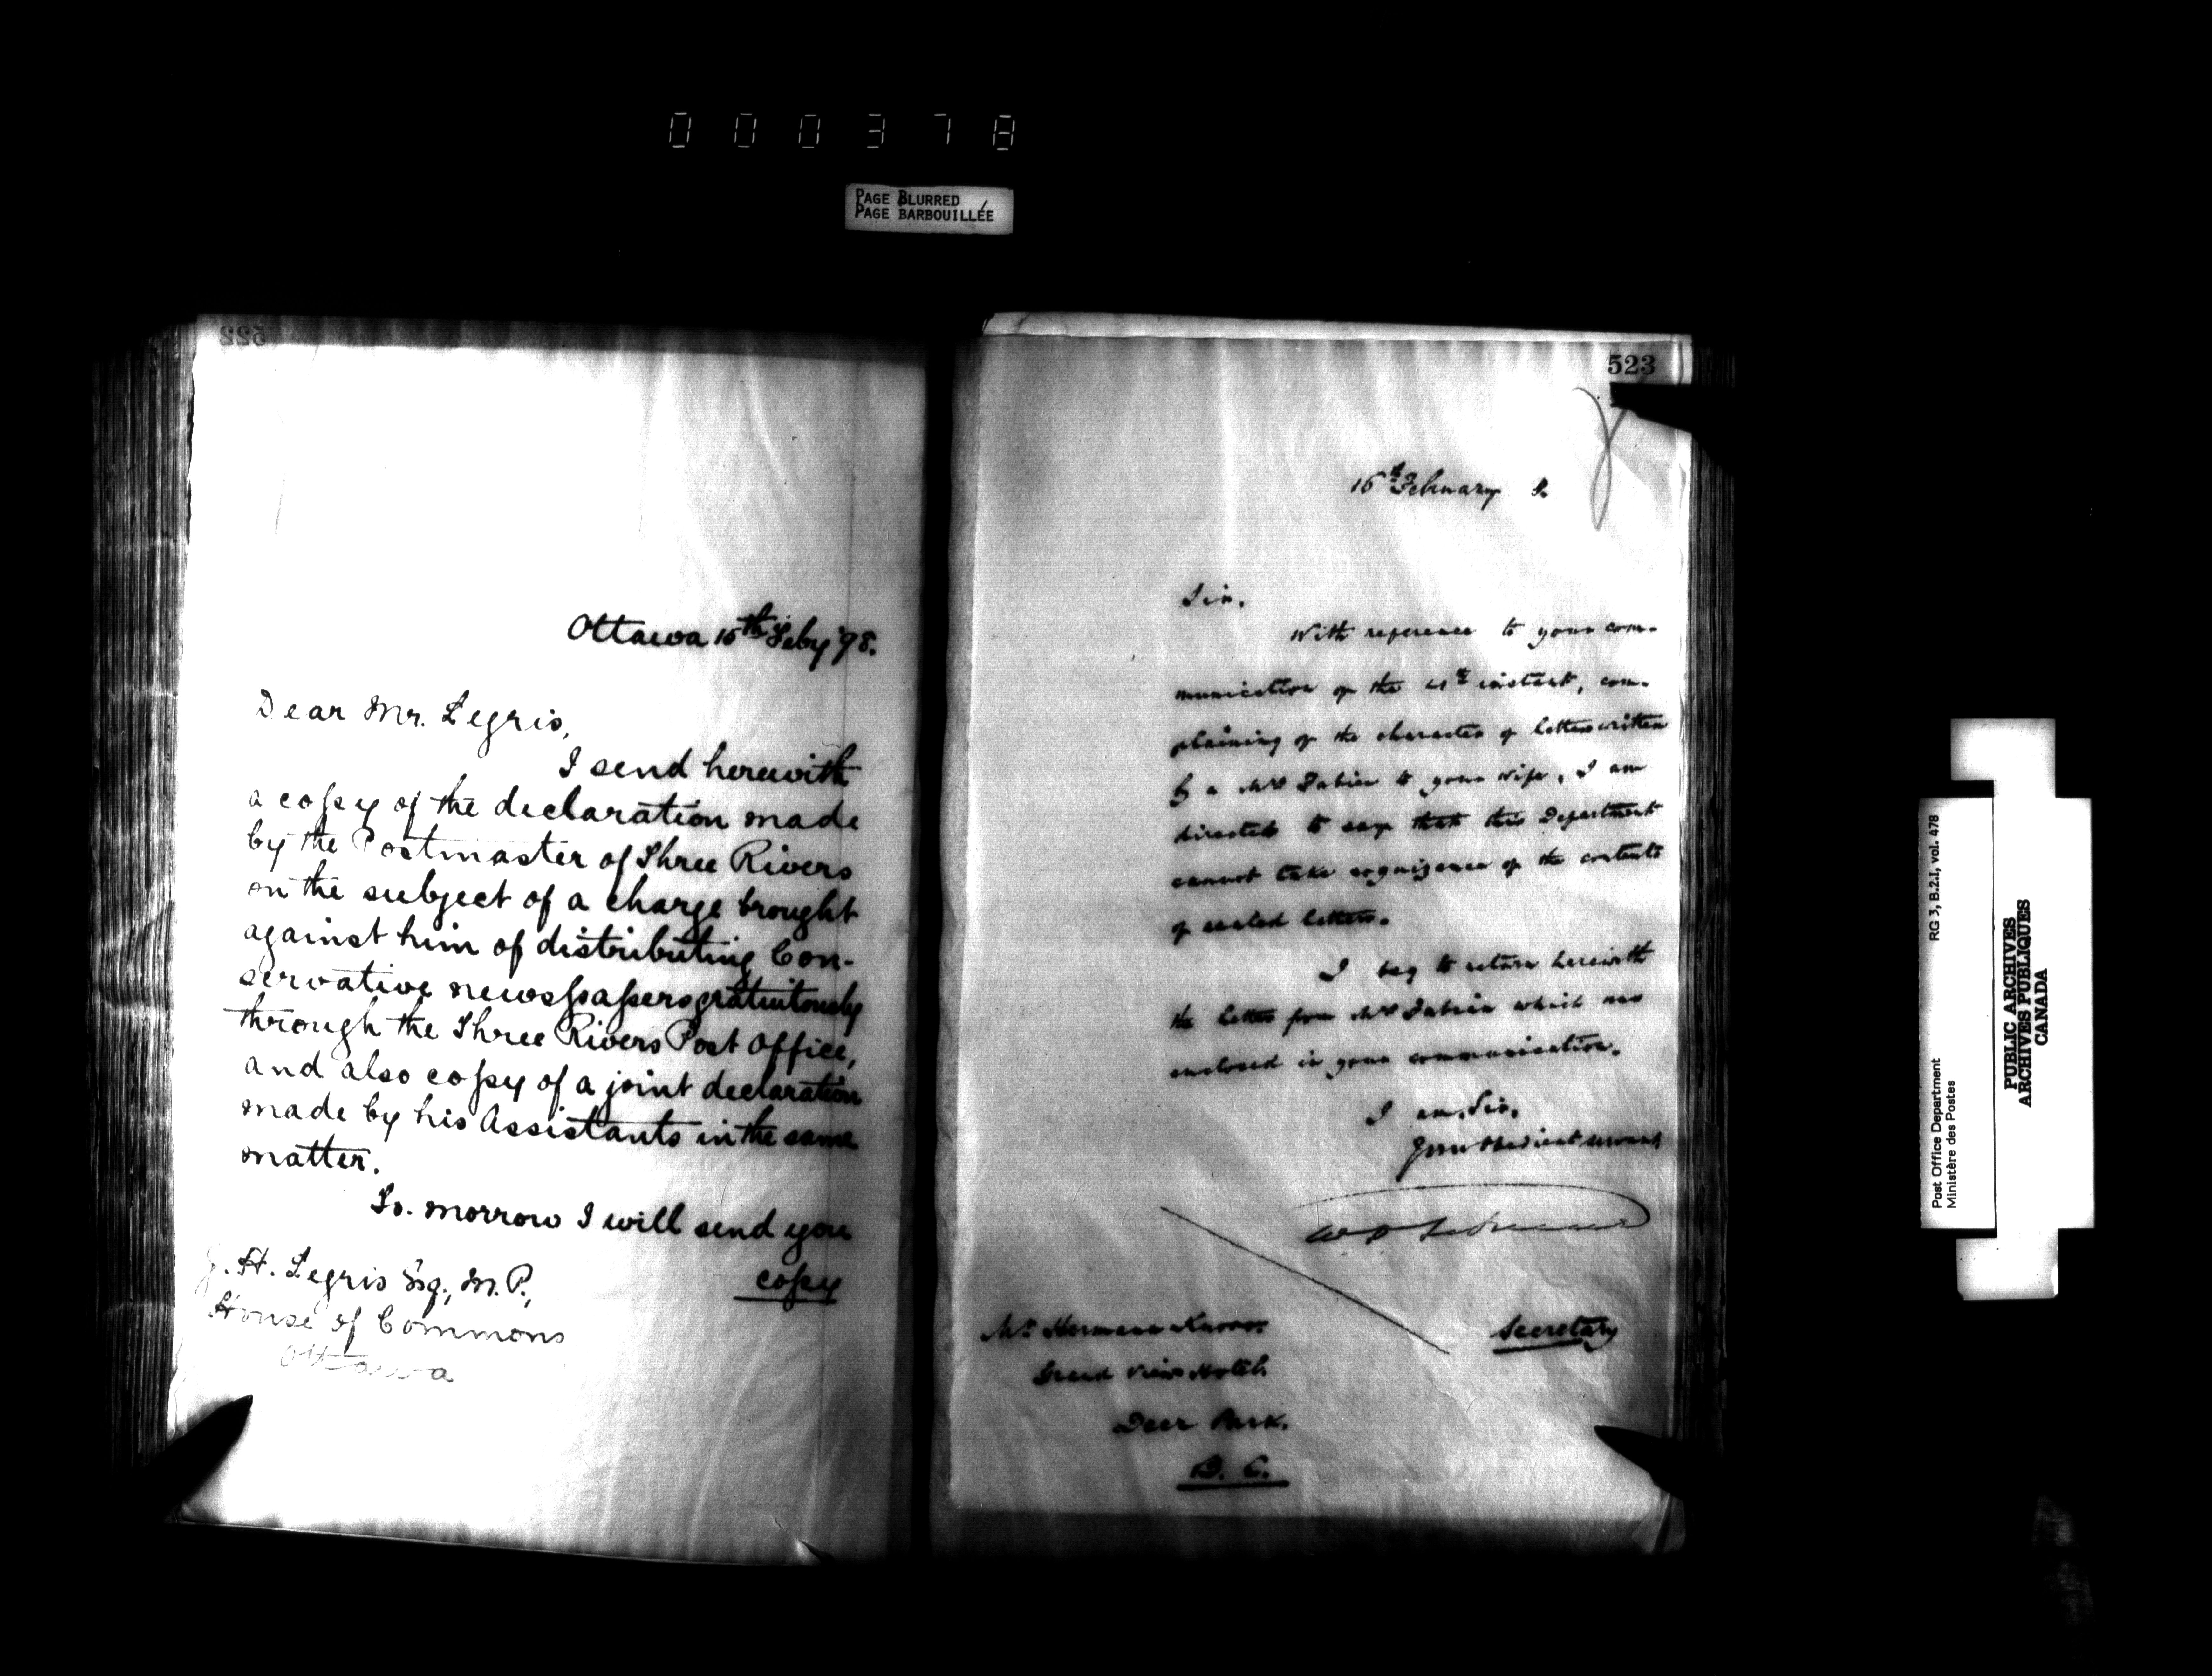 000378
PAGE BLURRED
PAGE BARBOUILLÉE
522
Ottawa 15th Feby '98.
Dear Mr. Legris,
I send herewith
a copy of the declaration made
by the Postmaster of Three Rivers
on the subject of a charge brought
against him of distributing Con-
servative newspapers gratuitously
through the Three Rivers Post Office,
and also copy of a joint declaration
made by his Assistants in the same
matter.
To. morrow I will send you
copy
J. H. Legris Esq., M. P.,
House of Commons
Ottawa
523
15th February 8.
Sir,
With reference to your com-
munication of the 4th instant, com-
plaining of the character of letters written
by a Mrs to your wife, I am
directed to say that this Department
cannot take cognizance of the contents
of sealed letters.
I beg to return herewith
the letter from Mrs which was
enclosed in your communication.
I am, Sir,
Your obedient servant
Secretary
Mr Hermann
Grand View Hotel,
Deer Park,
B. C.
Post Office Department RG 3, B.2.I, vol. 478
Ministère des Postes
PUBLIC ARCHIVES
ARCHIVES PUBLIQUES
CANADA